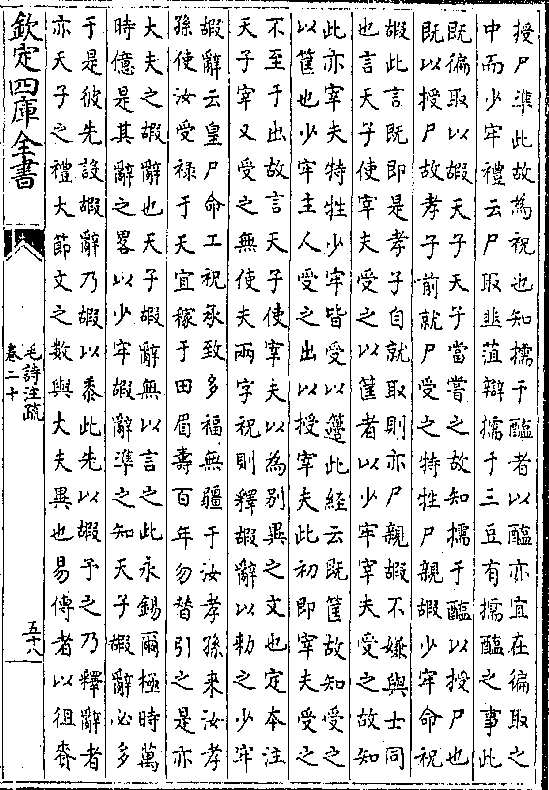 授尸準此故為祝也知擩于醢者以醢亦宜在徧取之
中而少牢禮云尸取韭菹辯擩于三豆有擩醢之事此
既徧取以嘏天子天子當嘗之故知擩于醢以授尸也
既以授尸故孝子前就尸受之特牲尸親嘏少牢命祝
嘏此言既即是孝子自就取則亦尸親嘏不嫌與士同
也言天子使宰夫受之以筐者以少牢宰夫受之故知
此亦宰夫特牲少牢皆受以籩此經云既筐故知受之
以筐也少牢主人受之出以授宰夫此初即宰夫受之
不至于出故言天子使宰夫以為別異之文也定本注
天子宰又受之無使夫兩字祝則釋嘏辭以勑之少牢
嘏辭云皇尸命工祝承致多福無疆于汝孝孫來汝孝
孫使汝受禄于天宜稼于田眉壽百年勿替引之是亦
大夫之嘏辭也天子嘏辭無以言之此永錫爾極時萬
時億是其辭之畧以少牢嘏辭準之知天子嘏辭必多
于是彼先設嘏辭乃嘏以黍此先以嘏予之乃釋辭者
亦天子之禮大節文之數與大夫異也易傳者以徂賚
欽定四庫全書
毛詩注疏
卷二十
五十八